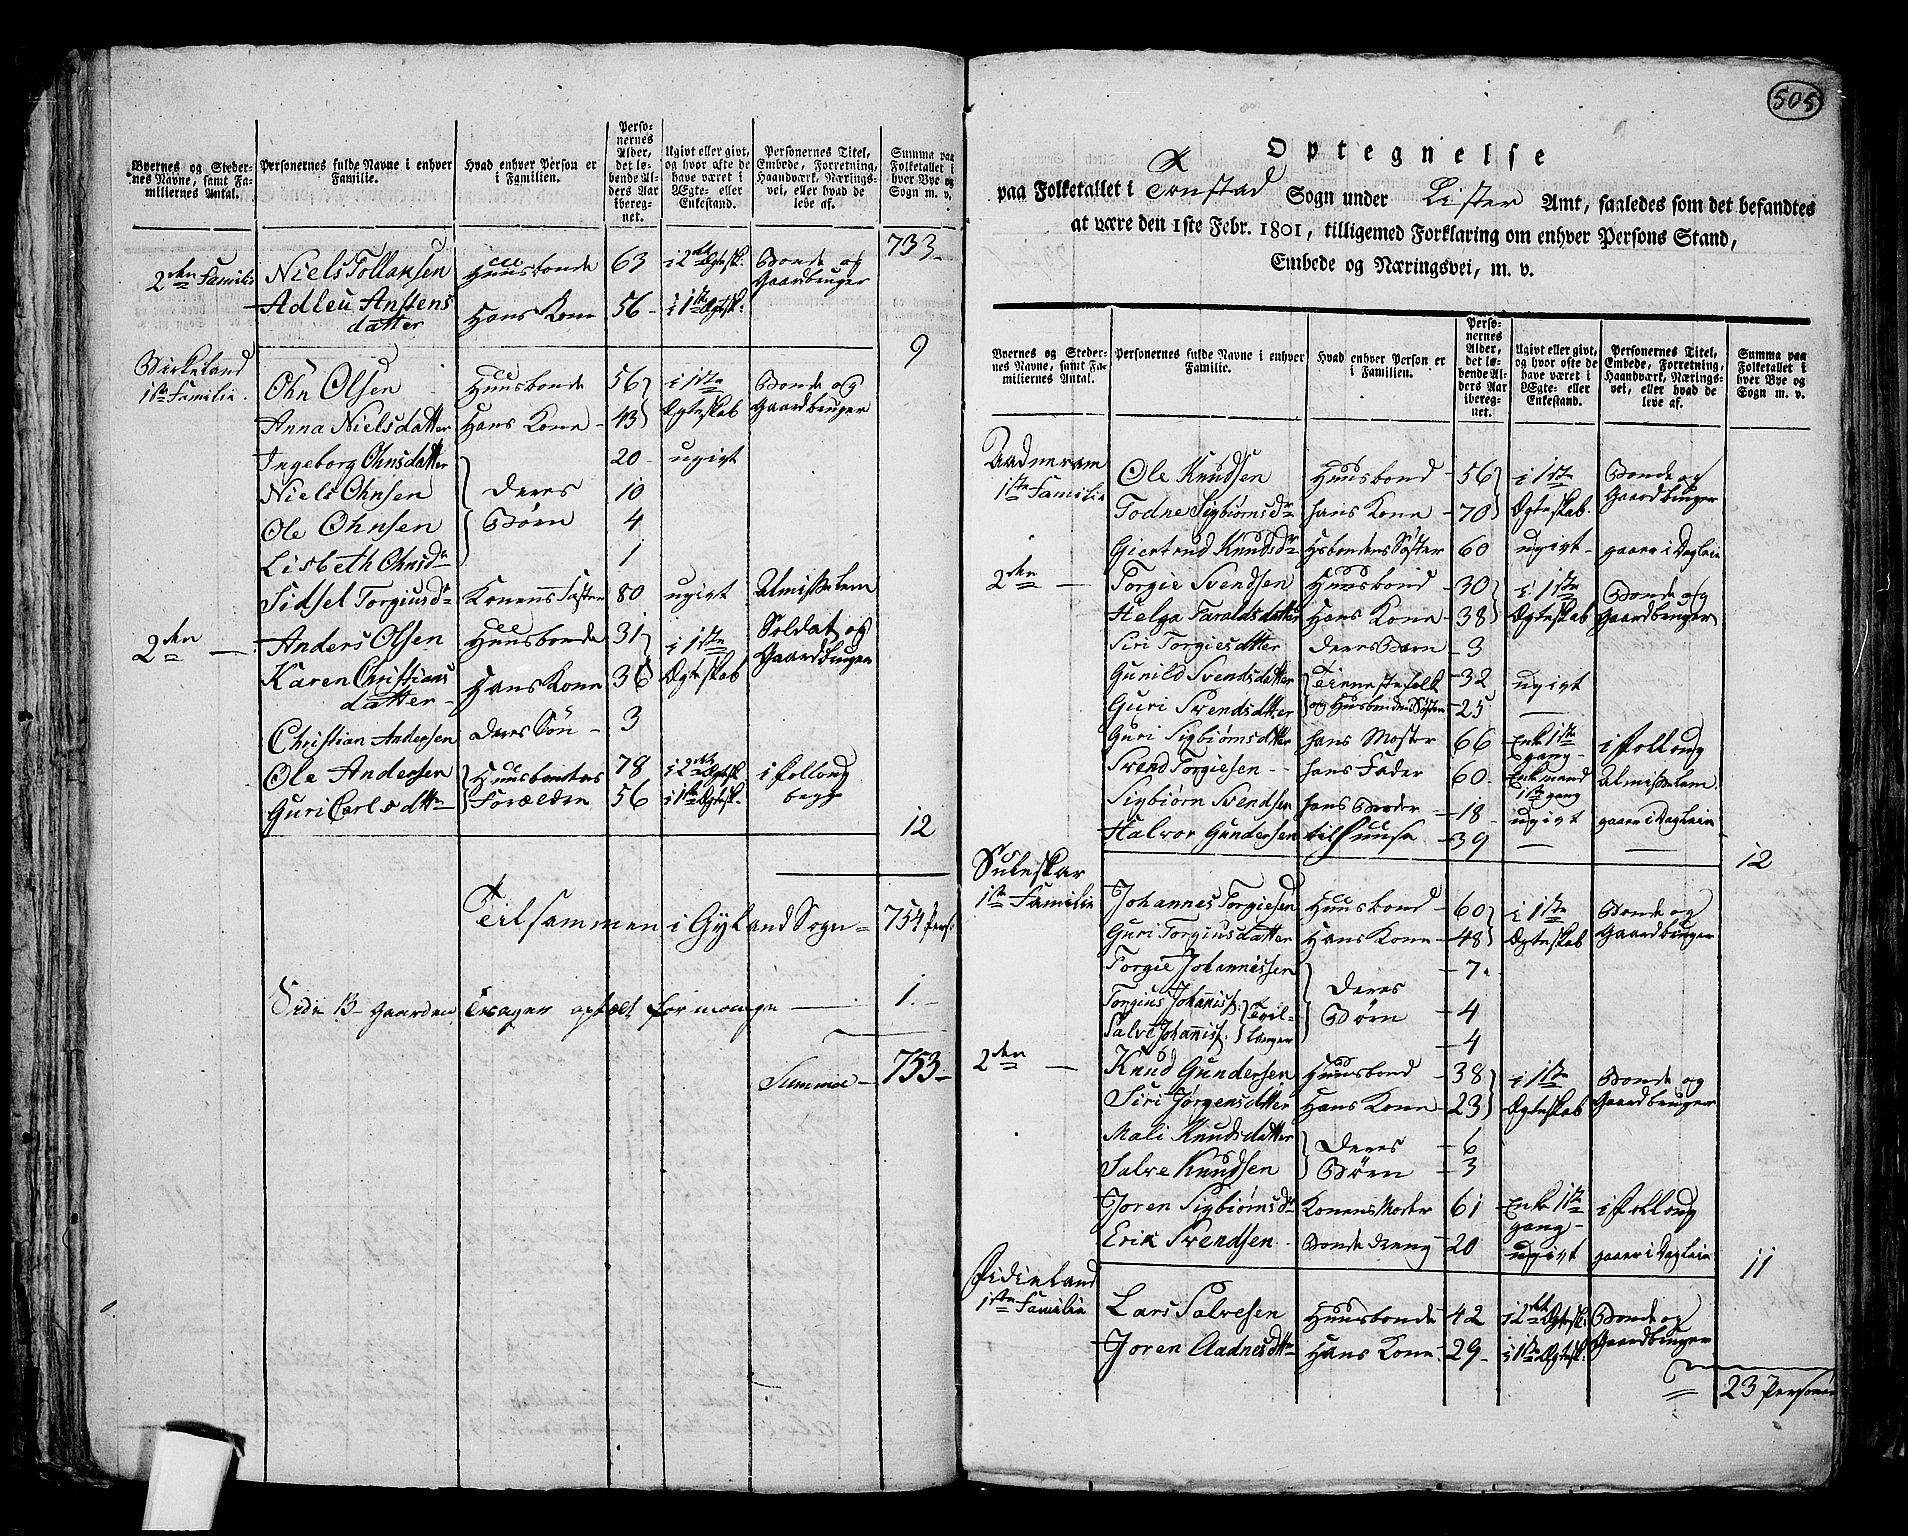 Byernes og Steder-
nes Navne, samt Fa-
miliernes Antal.
Personernes fulde Navne i enhver
Familie.
Hvad enhver Person er
i Familien.
Perso-
nernes
Alder,
det lø-
bende Al-
ders Aar
iberegnet.
Ugivt eller givt,
og hvor ofte de
have været i
Ægte- eller
Enkestand.
Personernes Titel,
Embede, Forretning,
Haandværk, Nærings-
vei, eller hvad de
leve af.
Summa paa
Folketallet i
hver Bye og
Sogn m. v.
733
2den Familie Niels Tollansen Huusbonde 63 i 2det Ægtesk. Bonde og Gaardbruger
Adleu Anstens datter Hans Kone 56 i 1ste Ægtesk.
9
Birkeland
1ste Familie. Ohn Olsen Huusbonde 56 i 1ste Bonde og
Anna Nielsdatter Hans Kone 43 Ægteskab Gaardbruger
Ingeborg Ohnsdatter 20 ugivt
Niels Ohnsen Deres 10
Ole Ohnsen Børn 4
Lisbeth Ohnsdr 1
Sidsel Torgiusdr Konens Søster 80 ugivt Almisselem
2den Anders Olsen Huusbonde 31 i 1ste Soldat og
Karen Christians datter Hans Kone 36 Ægteskab Gaardbruger
Christian Andersen Deres Søn 3
Ole Andersen Huusbondens 78 i 2det Ægtesk. i Folloug
Guri Carlsdtr Forældre 56 i 1ste Ægtesk. begge
12
Tilsammen i Gyland Sogn 754 Pers.
Side 13 Gaarden optælt for mange 1.
Summa 753
505
Optegnelse
paa Folketallet i Tonstad Sogn under Lister Amt, saaledes som det befandtes
at være den 1ste Febr. 1801, tilligemed Forklaring om enhver Persons Stand,
Embede og Næringsvei, m. v.
Byernes og Steder-
nes Navne, samt Fa-
miliernes Antal.
Personernes fulde Navne i enhver
Familie.
Hvad enhver Person er
i Familien.
Perso-
nernes
Alder,
det lø-
bende Al-
ders Aar
iberegnet.
Ugivt eller givt,
og hvor ofte de
have været i
Ægte- eller
Enkestand.
Personernes Titel,
Embede, Forretning,
Haandværk, Nærings-
vei, eller hvad de
leve af.
Summa paa
Folketallet i
hver Bye og
Sogn m. v.
Aadneram
1ste Familie Ole Knudsen Huusbond 56 i 1ste Bonde og
Todne Sigbiørnsdr hans Kone 70 Ægteskab. Gaardbruger
Giertrud Knudsdr Hsbondens Søster 60 ugivt gaaer i Dagleie
2den Torgie Svendsen Huusbond 30 i 1ste Bonde og
Helga Taraldsdatter Hans Kone 38 Ægteskab Gaardbruger
Siri Torgiesdatter deres Barn 3
Gunild Svendsdatter Tienestefolk 32 ugivt
Guri Svendsdatter og Husbondens Søstre 25
Guri Sigbiørnsdatter hans Moster 66 Enke 1ste gang i Folloug
Svend Torgiesen hans Fader 60 Enkemand 1ste gang Almisselem
Sigbiørn Svendsen hans Broder 18 ugivt gaaer i Dagleie
Halvor Gundersen til Huuse 39
12
Suleskar
1ste Familie Johannes Torgiesen Huusbond 60 i 1ste Bonde og
Guri Torgiusdatter Hans Kone 48 Ægteskab Gaardbruger
Torgie Johannessen 7
Torgius Johaniss. Tvil- Deres Børn 4
Salve Johaniss. linger 4
2den Knud Gundersen Huusbond 38 i 1ste Bonde og
Siri Jørgensdatter Hans Kone 23 Ægteskab Gaardbruger
Mali Knudsdatter Deres 6
Salve Knudsen Børn 3
Joren Sigbiørnsdr Konens Moder 61 Enke 1ste gang i Folloug
Erik Svendsen Bondedreng 20 ugivt gaaer i Dagleie
11
Fidieland
1ste Familie Lars Salvesen Huusbonde 42 i 2det Ægtesk. Bonde og
Joren Aadnesdtr Hans Kone 29 i 1ste Ægtesk. Gaardbruger
23 Personer